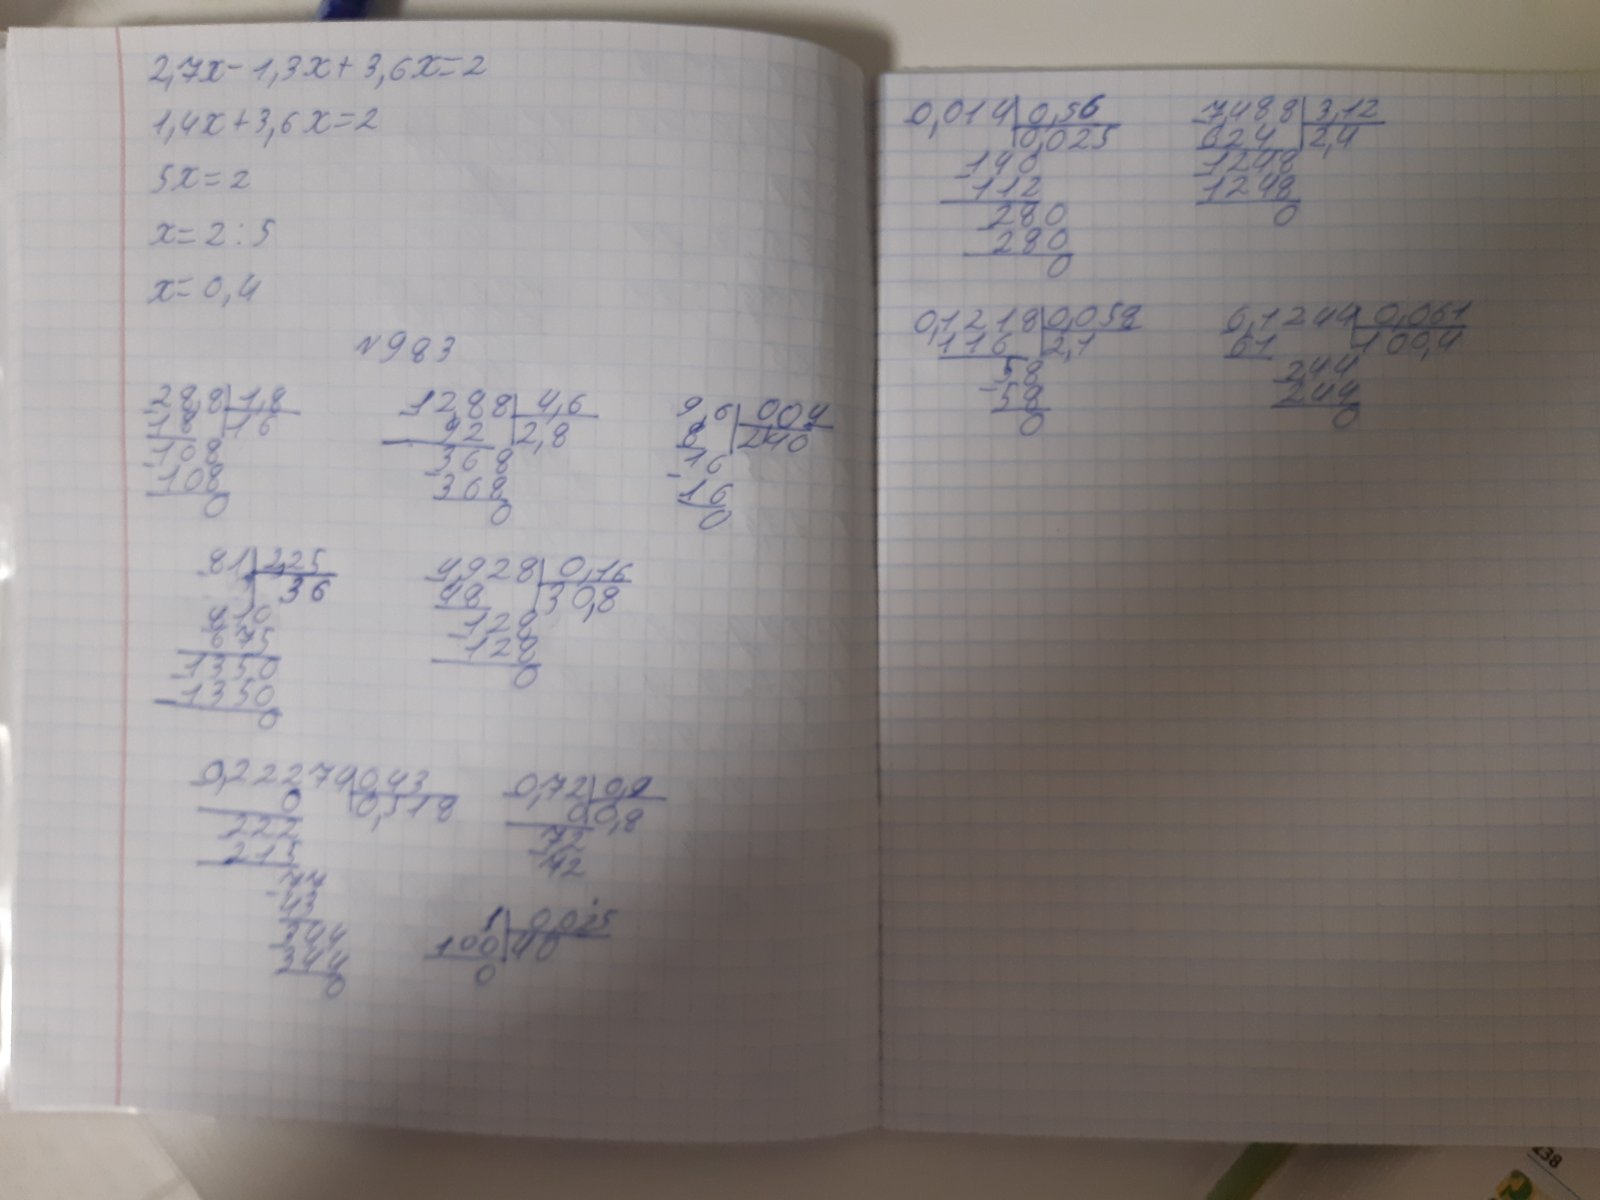 2,7x- 1,3x+ 3,6x=2
1,4x+3,6x=2
5x=2
x=2:5
x=0,4
№983
28,8 1,8
18 16
108
108
0
1288 4,6
92 2,8
368
368
0
9,6 0,04
8 240
16
16
0
81 2,25
36
810
675
1350
1350
0
4,928 0,16
48 30,8
128
128
0
0,22274 0,43
0 0,518
222
215
77
43
344
344
0
0,72 0,9
0 0,8
72
72
1 0,025
100 40
0
0,014 0,56
0,025
140
112
280
280
0
7488 3,12
624 2,4
1248
1248
0
0,1218 0,058
116 2,1
58
58
0
6,1244 0,061
61 100,4
244
244
0
238